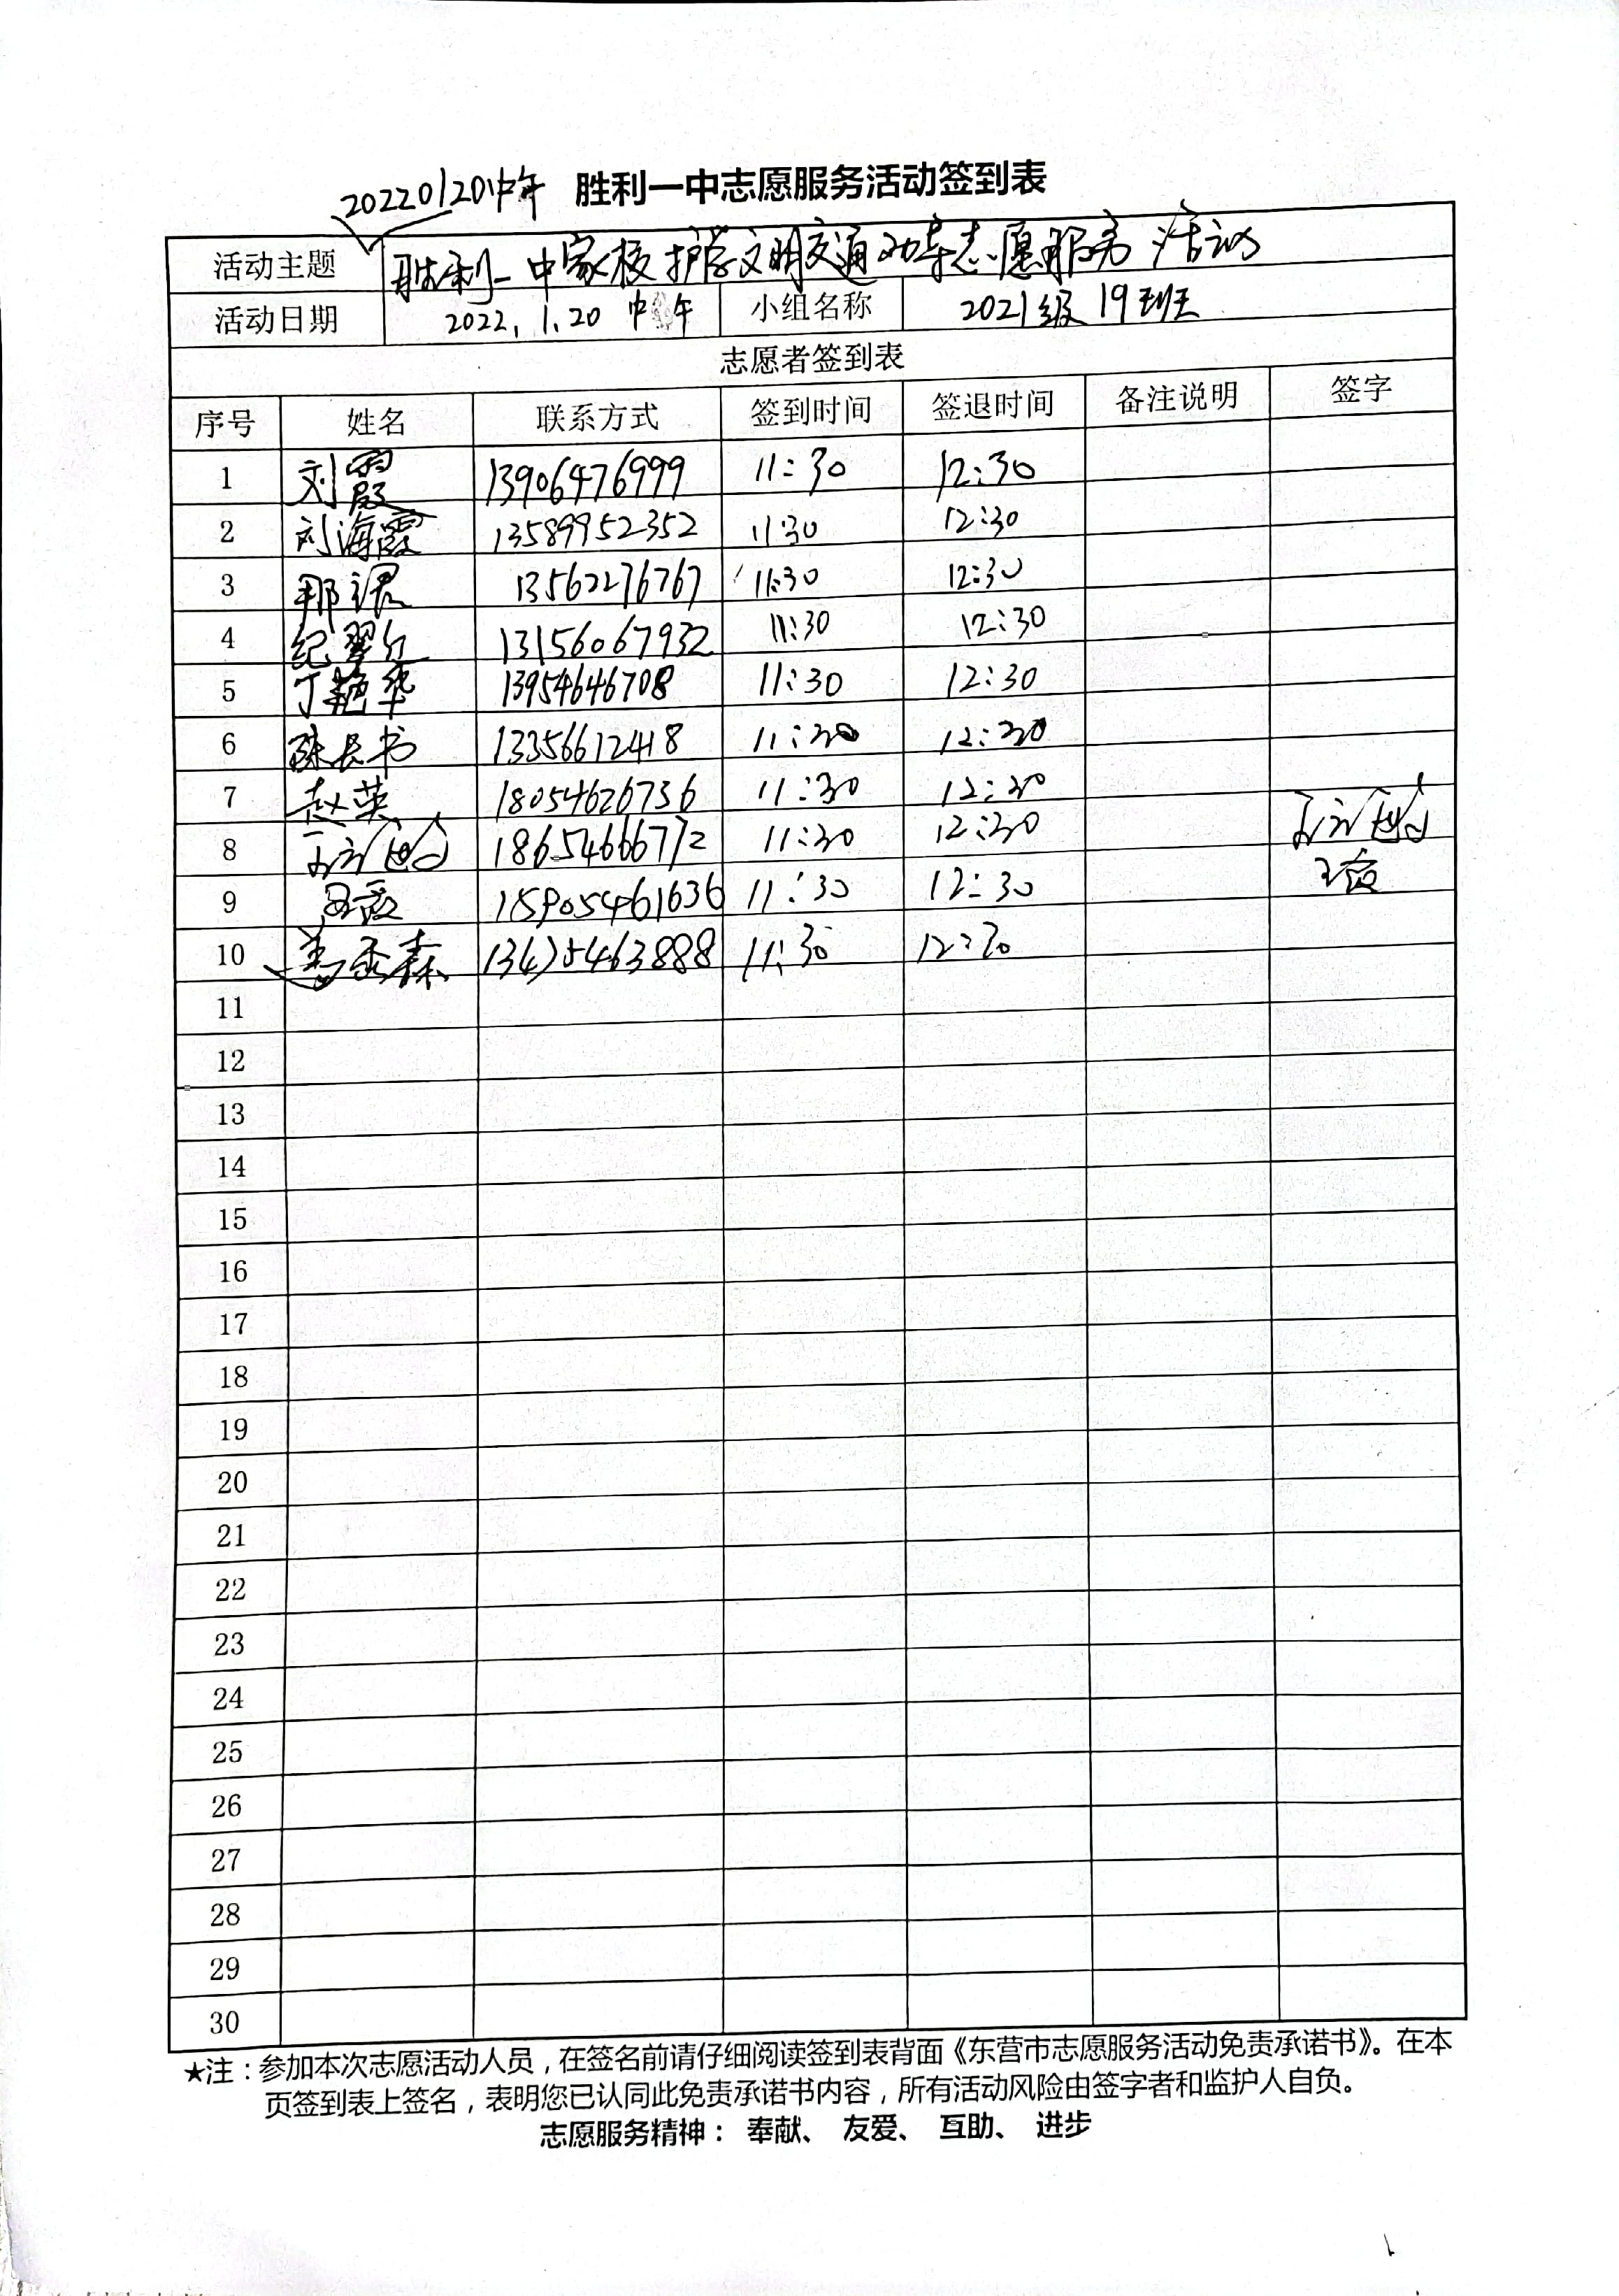 20220120中午 胜利一中志愿服务活动签到表
活动主题 胜利一中家校护学文明交通劝导志愿服务活动
活动日期 2022.1.20 中午 小组名称 2021级19班
志愿者签到表
序号 姓名 联系方式 签到时间 签退时间 备注说明 签字
1 刘霞 13906476999 11:30 12:30
2 刘海霞 13589952352 11:30 12:30
3 13562276767 11:30 12:30
4 纪翠红 13156067932 11:30 12:30
5 丁艳华 13954646708 11:30 12:30
6 13356612418 11:30 12:30
7 赵英 18054626736 11:30 12:30
8 18654666772 11:30 12:30
9 15905461636 11:30 12:30
10 11:30 12:30
11
12
13
14
15
16
17
18
19
20
21
22
23
24
25
26
27
28
29
30
★注：参加本次志愿活动人员，在签名前请仔细阅读签到表背面《东营市志愿服务活动免责承诺书》。在本
页签到表上签名，表明您已认同此免责承诺书内容，所有活动风险由签字者和监护人自负。
志愿服务精神： 奉献、 友爱、 互助、 进步